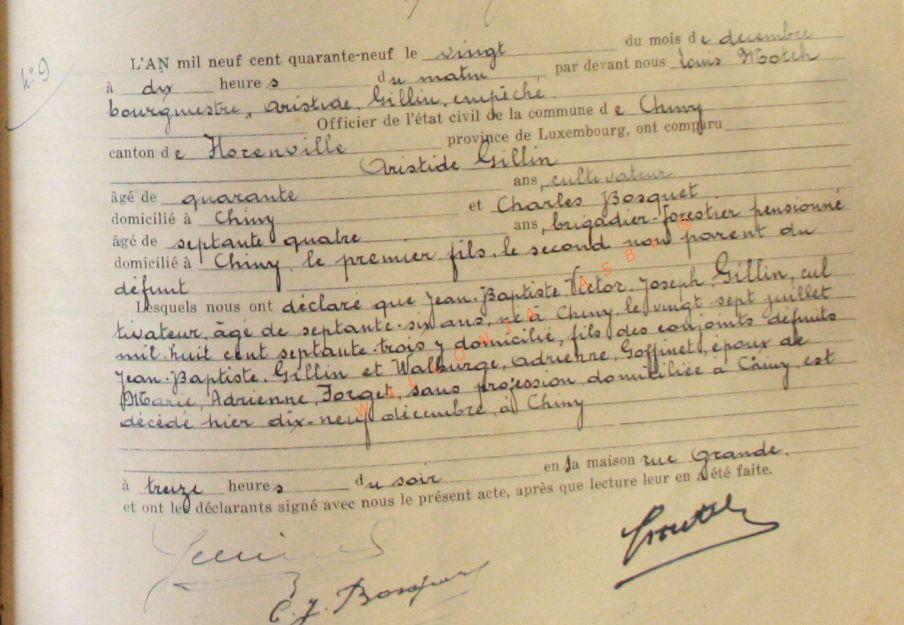 N° 9
L'AN mil neuf cent quarante-neuf le vingt du mois de décembre
à dix heures du matin par devant nous Louis
bourgmestre, Aristide Gillin, empêché
Officier de l'état civil de la commune de Chiny
canton de Florenville province de Luxembourg, ont comparu
Aristide Gillin
âgé de quarante ans, cultivateur
domicilié à Chiny et Charles Bosquet
âgé de septante quatre ans, brigadier-forestier pensionné
domicilié à Chiny, le premier fils, le second non parent du
défunt
Lesquels nous ont déclaré que Jean-Baptiste Victor Joseph Gillin, cul
tivateur, âgé de septante-six ans, né à Chiny le vingt-sept juillet
mil huit cent septante-trois y domicilié, fils des conjoints défunts
Jean-Baptiste Gillin et Walburge, Adrienne, Goffinet, époux de
Marie, Adrienne, Forget, sans profession, domiciliée à Chiny est
décédé hier dix-neuf décembre, à Chiny
à treize heures du soir en la maison rue Grande.
et ont les déclarants signé avec nous le présent acte, après que lecture leur en a été faite.
C. J. Bosquet